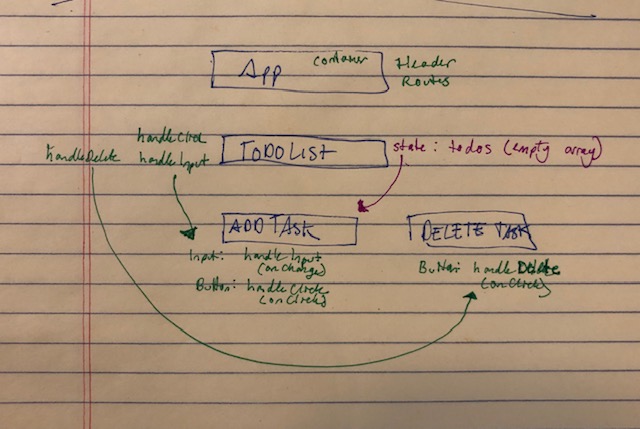 App
container
Header
Routes
handleDelete
handleClick
handleInput
TODO LIST
state: todos (empty array)
ADD TASK
DELETE TASK
Input: handleInput
(onChange)
Button: handleClick
(onClick)
Button: handleDelete
(onClick)